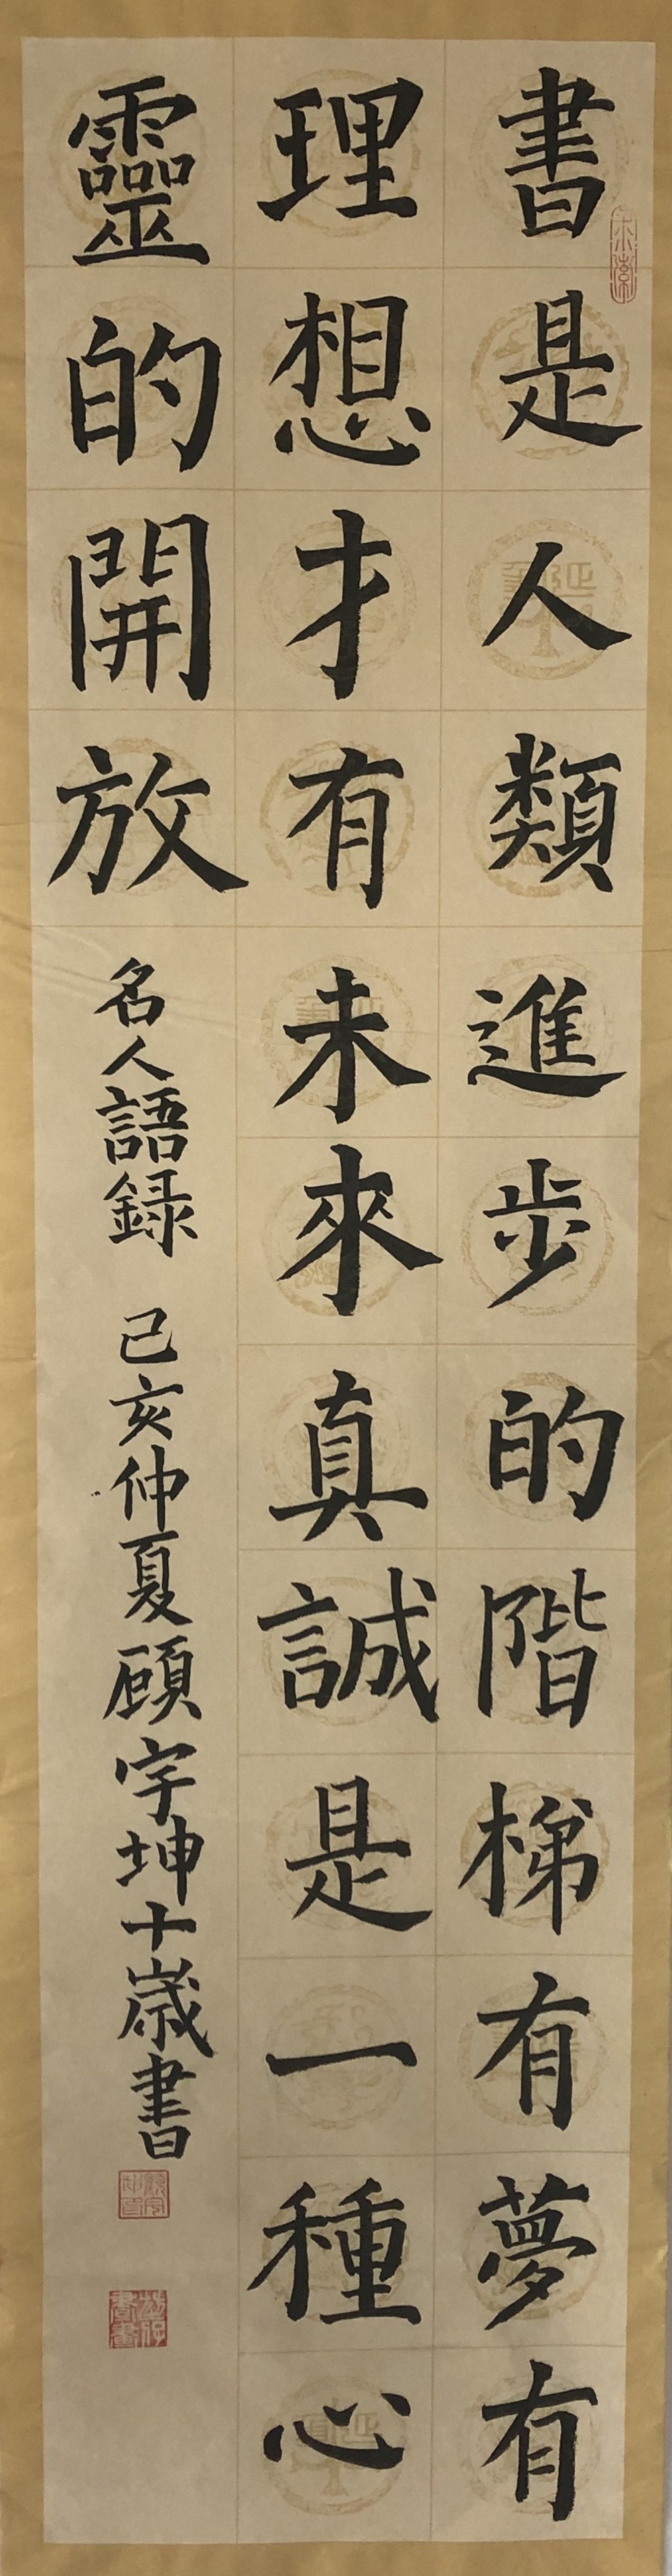 書是人類進步的階梯有夢有
理想才有未來真誠是一種心
靈的開放
名人語録 己亥仲夏顧宇坤十歲書